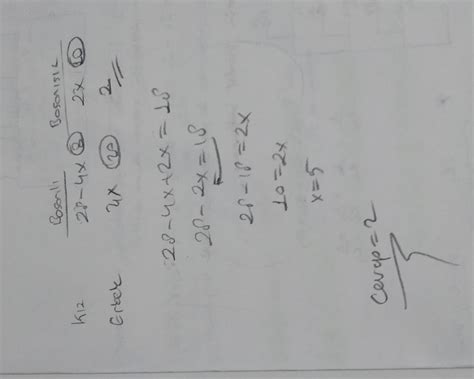 Basarılı Basarısız
Kız 28-4x 8 2x 10
Erkek 4x 20 2
28-4x+2x=18
28-2x=18
28-18=2x
10=2x
x=5
Cevap=2